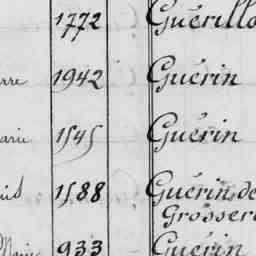 1772 Guérillo
erre 1942 Guérin
arie 1545 Guérin
1588 Guérin de
Grosseri
Marie 933 Guérin